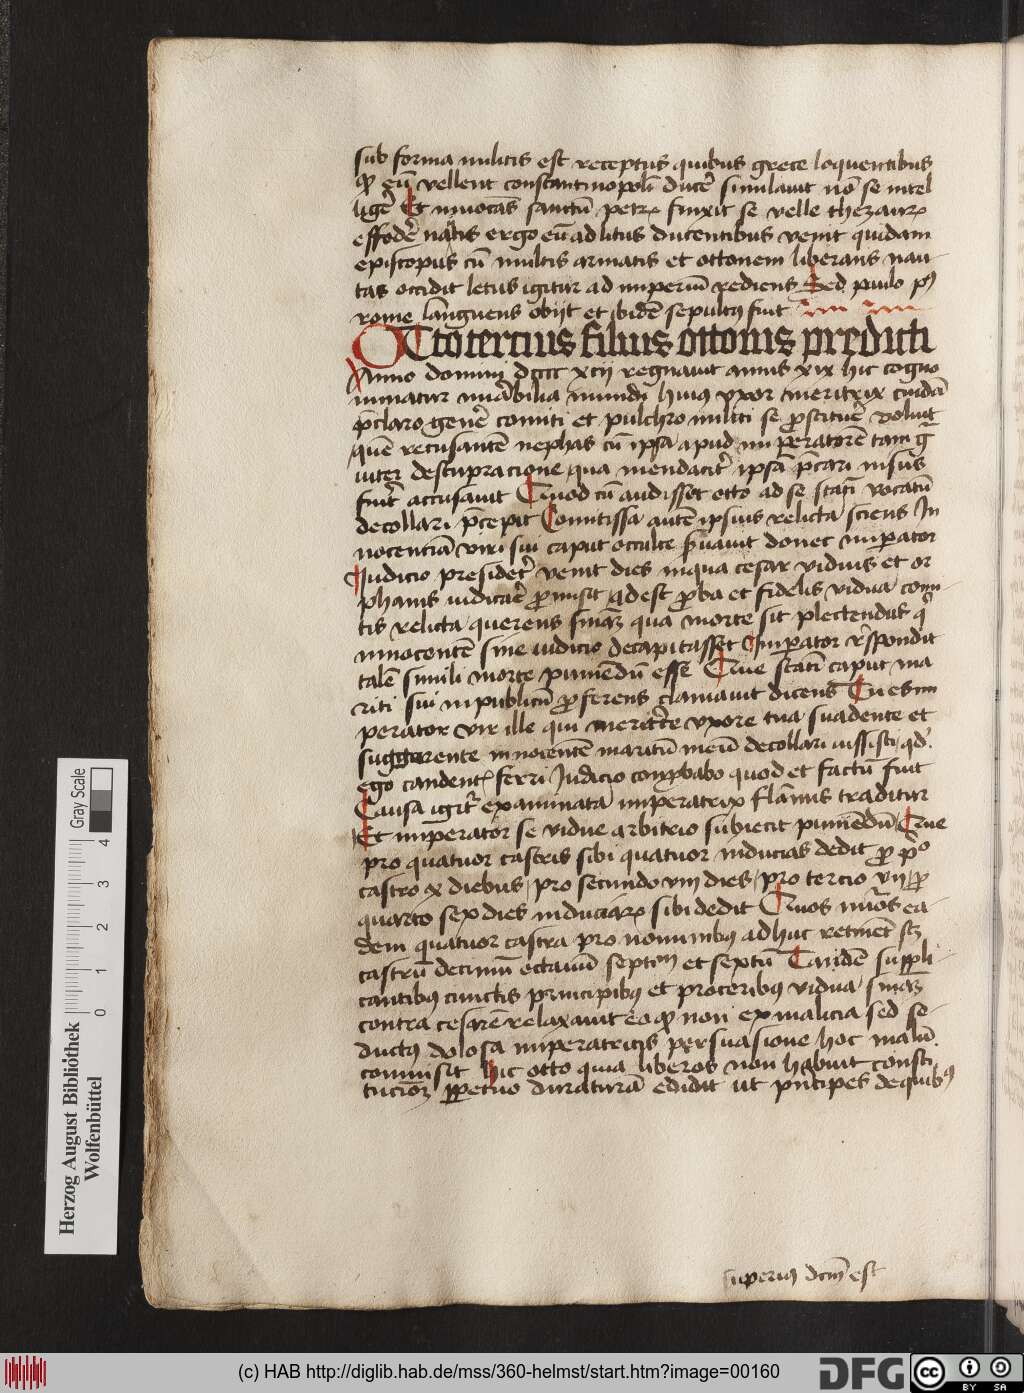 sub forma militis est receptus quibus grece loquentibus
qƺ eū vellent constantinopolī ducē simulauit nō se intel
ligē Et inuocās sanctū petrū finxit se velle thezaurū
effodē nautis ergo eū ad litus ducentibus venit quidam
episcopus cū multis armatis et ottonem liberans nau
tas occidit letus igitur ad imperiū rediens Sed paulo pꝰ
rome languens obijt et ibidē sepultꝰ fuit
Otto tercius filius ottonis predicti
Anno domini dcccc xcij regnauit annis xix hic cogno
minatur mirabilia mundi huiꝰ vxor meritrix cuidā
p̄claro genē comiti et pulchro militi se prostituē voluit
quē recusantē nephas cū ipsa apud imperatorē tam g̃
uiter de stupracione qua mendacitˀ ipsā p̄cari nisus
fuit accusauit Quod cū audisset otto ad se statī vocatū
decollari p̄cepit Comitissa autē ipsius relicta sciens In
nocenciā viri sui caput occulte ẜuauit donec imperator
Iudicio presidet venit dies in qua cesar viduis et or
phanis iudicāē promisit adest proba et fidelis vidua comi
tis relicta querens sniaꝫ qua morte sit plectendus q̇
innocentē sine iudicio decapitasset Imperator respondit
talē simili morte puniendū esse Que statī caput ma
riti sui in publicū proferens clamauit dicens Tu es im
perator vir ille qui meritrice vxore tua suadente et
suggerente innocentē maritū meū decollari iussisti qd
ego candentꝭ ferri Iudicio comprobabo quod et factū fuit
Causa igitˀ examinata imperatrix flāmis traditur
Et imperator se vidue arbitrio subiecit puniendū Que
pro quatuor castris sibi quatuor inducias dedit pro pͦ
castro x diebus pro secundo viij dies pro tercio vij pro
quarto sex dies induciarū sibi dedit Quos nūos ea
dem quatuor castra pro nominibꝰ adhuc retinēt sꝫ
castrū decimū octauū septimū et sextū Tandē suppli
cantibꝰ cunctis principibꝰ et proceribꝰ vidua sniaꝫ
contra cesarē relaxauit eo qƺ non ex malicia sed se
ductꝰ dolosa imperatricis persuasione hoc malū
commisit hic otto quia liberos non habuit consti
tucionē ꝑpetuo duraturā edidit ut principes de quibꝰ
superiꝰ dcm̄ est
Herzog August Bibliothek
Wolfenbüttel
0 1 2 3 4
Gray Scale
(c) HAB http://diglib.hab.de/mss/360-helmst/start.htm?image=00160
DFG
cc
BY SA